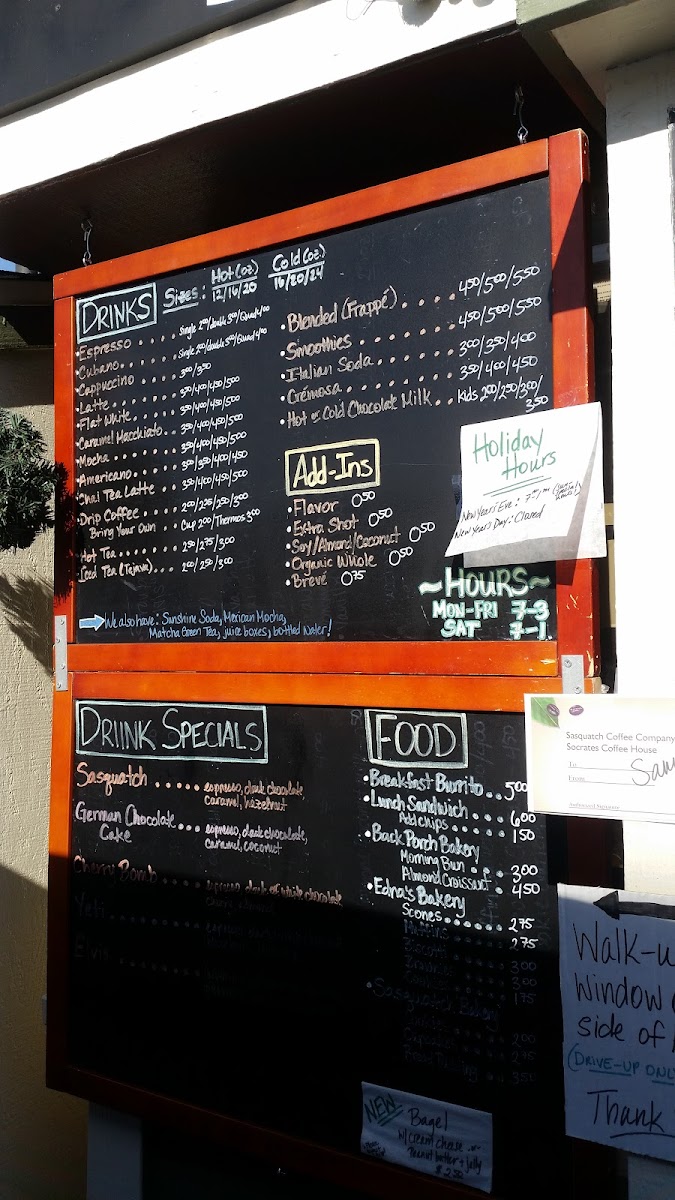 DRINKS
Sizes: Hot (oz.) 12/16/20 Cold (oz.) 16/20/24
• Espresso ..... Single 2.00/double 3.00/Quad 4.00
• Cubano ..... Single 2.00/double 3.00/Quad 4.00
• Cappuccino ..... 3.00/3.50
• Latte ........ 3.50/4.00/4.50/5.00
• Flat White ..... 3.50/4.00/4.50/5.00
• Caramel Macchiato .. 3.50/4.00/4.50/5.00
• Mocha ........ 3.50/4.00/4.50/5.00
• Americano ....... 3.00/3.50/4.00
• Chai Tea Latte 3.50/4.00/4.50/5.00
• Drip Coffee ...... 2.00/2.25/2.50/3.00
Bring Your Own .. Cup 2.00/Thermos 3.00
• Hot Tea ........ 2.50/2.75/3.00
• Iced Tea (Tejava) .. 2.00/2.50/3.00
• Blended (Frappé) .... 4.50/5.00/5.50
• Smoothies ........ 4.50/5.00/5.50
• Italian Soda ....... 3.00/3.50/4.00
• Crémosa ......... 3.50/4.00/4.50
• Hot or Cold Chocolate Milk .. Kids 2.00/2.50/3.00/
3.50
Add-Ins
• Flavor 0.50
• Extra Shot 0.50
• Soy/Almond/Coconut 0.50
• Organic Whole 0.50
• Brevé 0.75
Holiday
Hours
New Year's Eve: 7
New Year's Day: Closed
~HOURS~
MON-FRI 7-3
SAT 7-1
We also have: Sunshine Soda, Mexican Mocha,
Matcha Green Tea, juice boxes, bottled water!
DRIINK SPECIALS
Sasquatch ..... espresso, dark chocolate,
caramel, hazelnut
German Chocolate ... espresso, dark chocolate,
Cake caramel, coconut
Cherry Bomb ..... espresso, dark or white chocolate
cherry, almond
Yeti
Elvis
FOOD
• Breakfast Burrito .. 5.00
• Lunch Sandwich ... 6.00
Add chips .... 1.50
• Back Porch Bakery
Morning Bun ... 3.00
Almond Croissant . 4.50
• Edna's Bakery
Scones ...... 2.75
Muffins
Biscotti .... 2.75
Brownies ... 3.00
Cookies ... 3.00
1.75
• Sasquatch Bakery
Cookies .... 2.00
Cupcakes ... 2.75
3.50
NEW
Bagel
w/ cream cheese or
Peanut butter + jelly
$2.50
Sasquatch Coffee Company
Socrates Coffee House
To
From
Sam
Authorized Signature
Walk-u
window
side of
(DRIVE-UP ONL
Thank